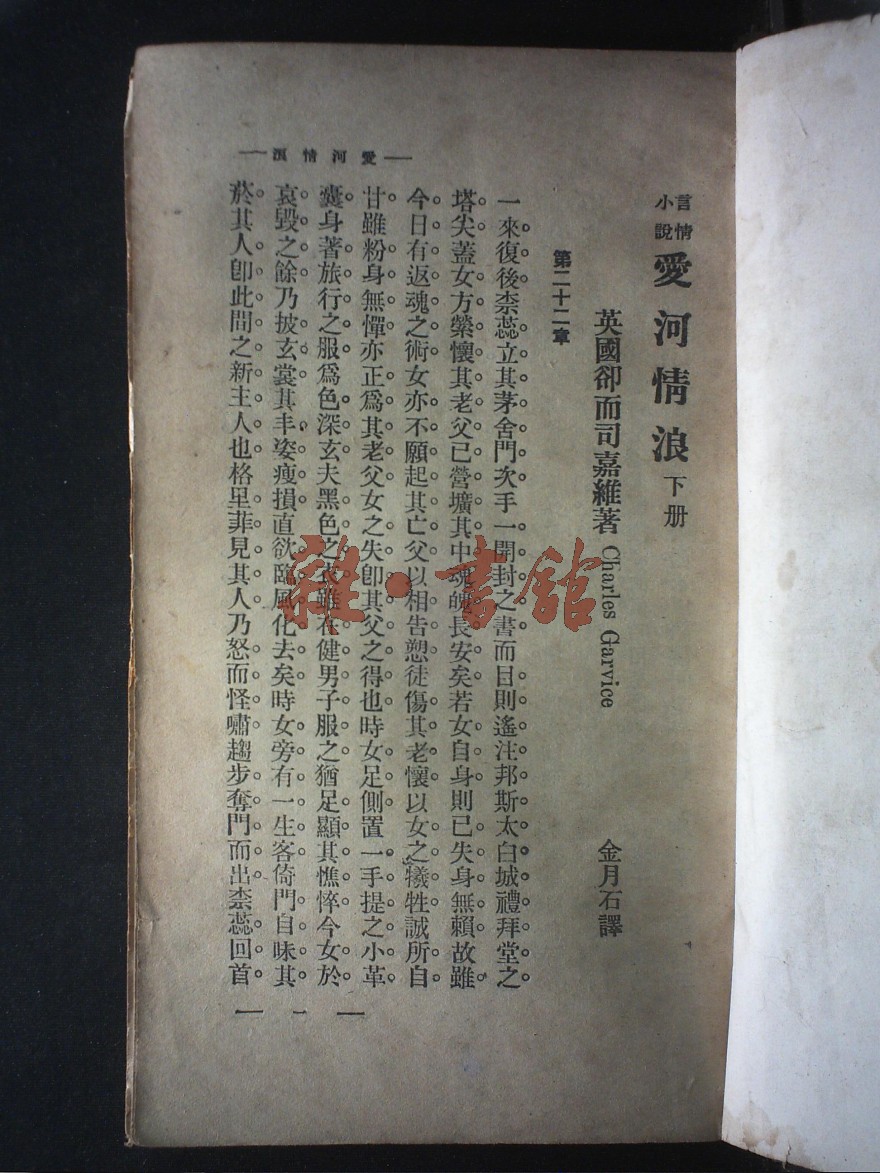 言情小說 愛河情浪 下册
英國卻而司嘉維著 Charles Garvice 金月石譯
第二十二章
一來復後柰蕊立其茅舍門次手一開封之書而目則遙注邦斯太白城禮拜堂之
塔尖蓋女方縈懷其老父已營壙其中魂魄長安矣若女自身則已失身無賴故雖
今日有返魂之術女亦不願起其亡父以相告愬徒傷其老懷以女之犧牲誠所自
甘雖粉身無憚亦正爲其老父女之失卽其父之得也時女足側置一手提之小革
囊身著旅行之服爲色深玄夫黑色之衣雖在健男子服之猶足顯其憔悴今女於
哀毀之餘乃披玄裳其丰姿瘦損直欲臨風化去矣時女旁有一生客倚門自味其
菸其人卽此間之新主人也格里菲見其人乃怒而怪嘯趨步奪門而出柰蕊回首
愛河情浪
一
雜·書館